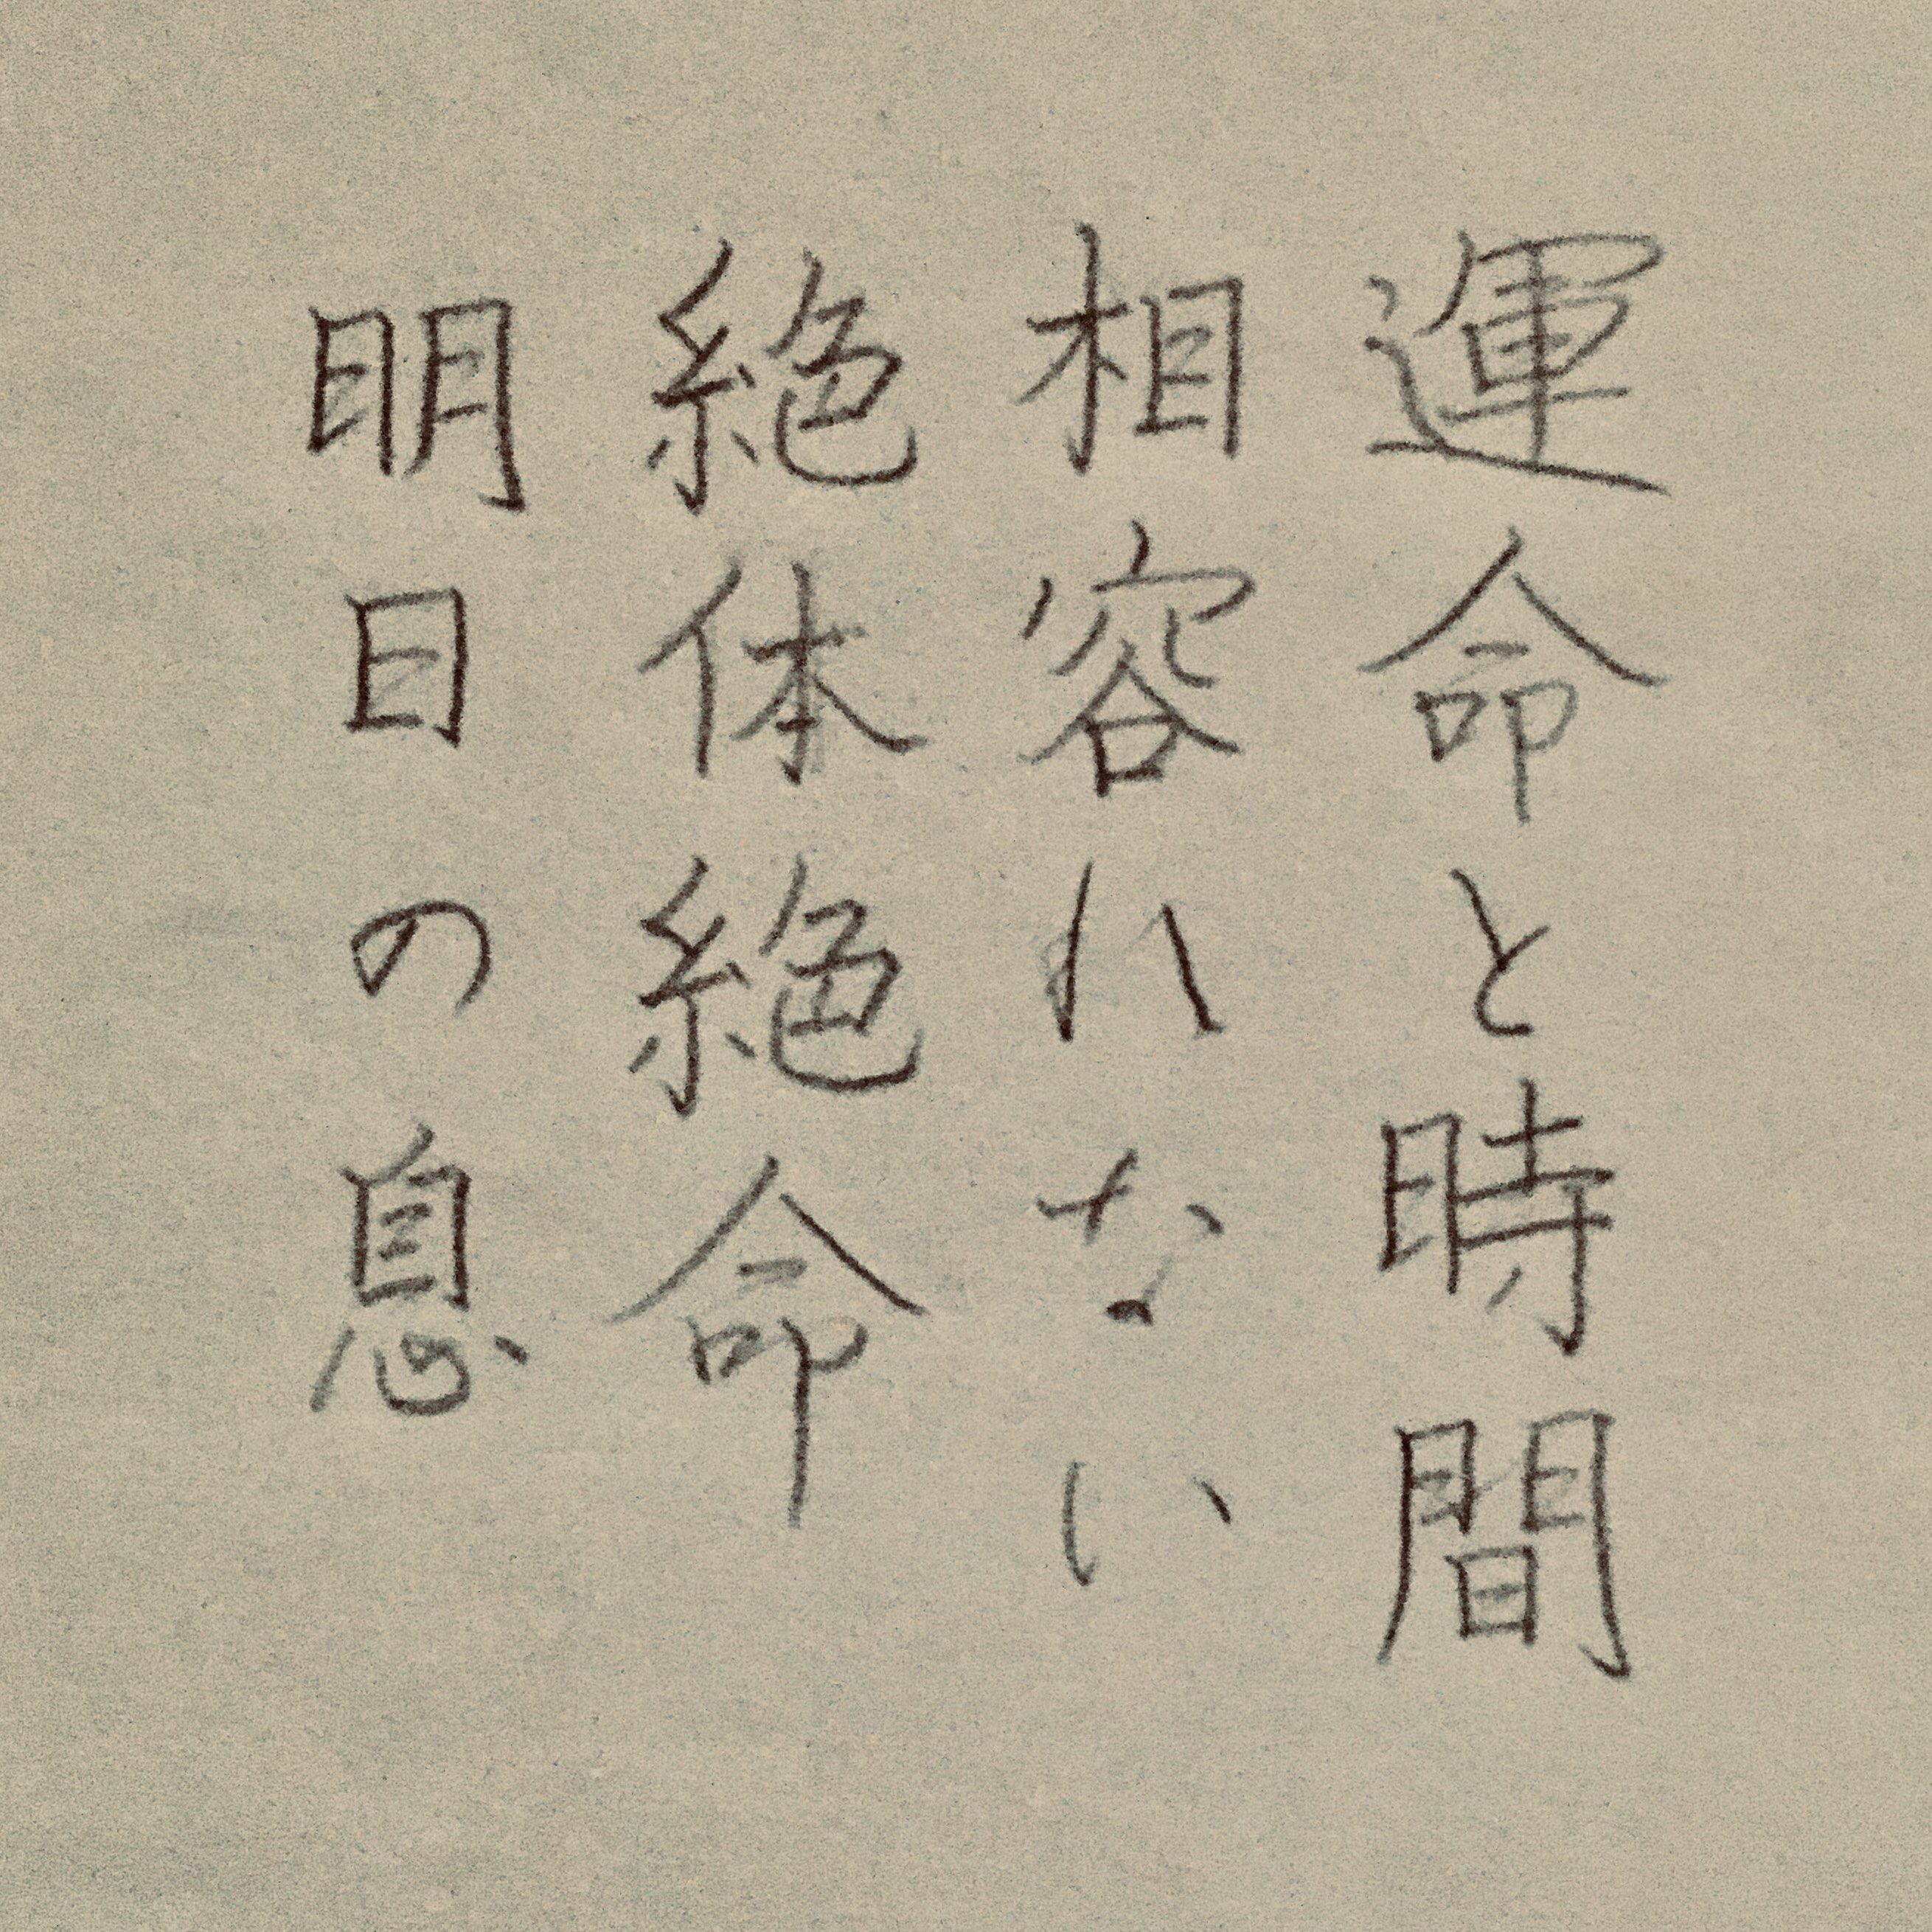 運命と時間
相容れない
絶体絶命
明日の息